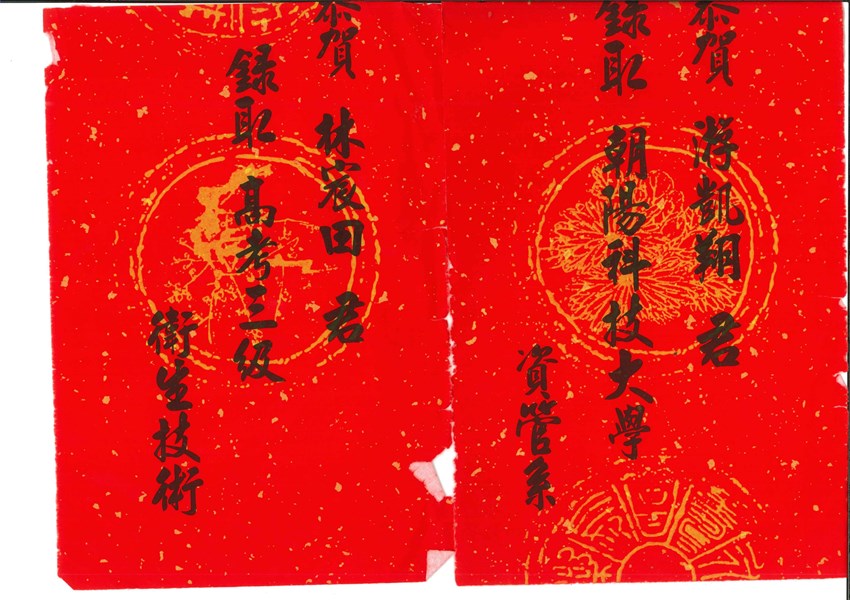 恭賀 游凱翔 君
錄取 朝陽科技大學
資管系
恭賀 林宸田 君
錄取 高考三級
衛生技術